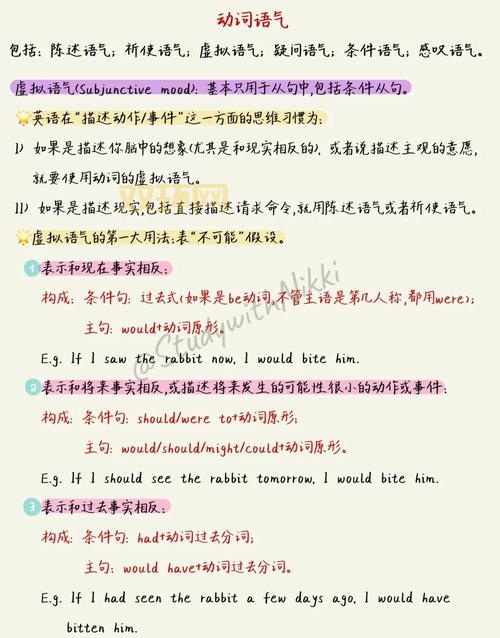 动词语气
包括: 陈述语气; 祈使语气; 虚拟语气; 疑问语气; 条件语气; 感叹语气。
虚拟语气(Subjunctive mood): 基本只用于从句中,包括条件从句。
英语在“描述动作/事件”这一方面的思维习惯为:
I) 如果是描述你脑中的想象(尤其是和现实相反的), 或者说描述主观的意愿,
就要使用动词的虚拟语气。
II) 如果是描述现实,包括直接描述请求命令,就用陈述语气或者祈使语气。
虚拟语气的第一大用法:表“不可能”假设。
1 表示和现在事实相反:
构成: 条件句: 过去式(如果是be动词,不管主语是第几人称,都用were);
主句: would+动词原形。
@StudywithNikki
E.g. If I saw the rabbit now, I would bite him.
2 表示和将来事实相反,或描述将来发生的可能性很小的动作或事件:
构成: 条件句: should/were to+动词原形;
主句: would/should/might/could+动词原形。
E.g. If I should see the rabbit tomorrow, I would bite him.
3 表示和过去事实相反:
构成: 条件句: had+动词过去分词;
主句: would have+动词过去分词。
E.g. If I had seen the rabbit a few days ago, I would have
bitten him.